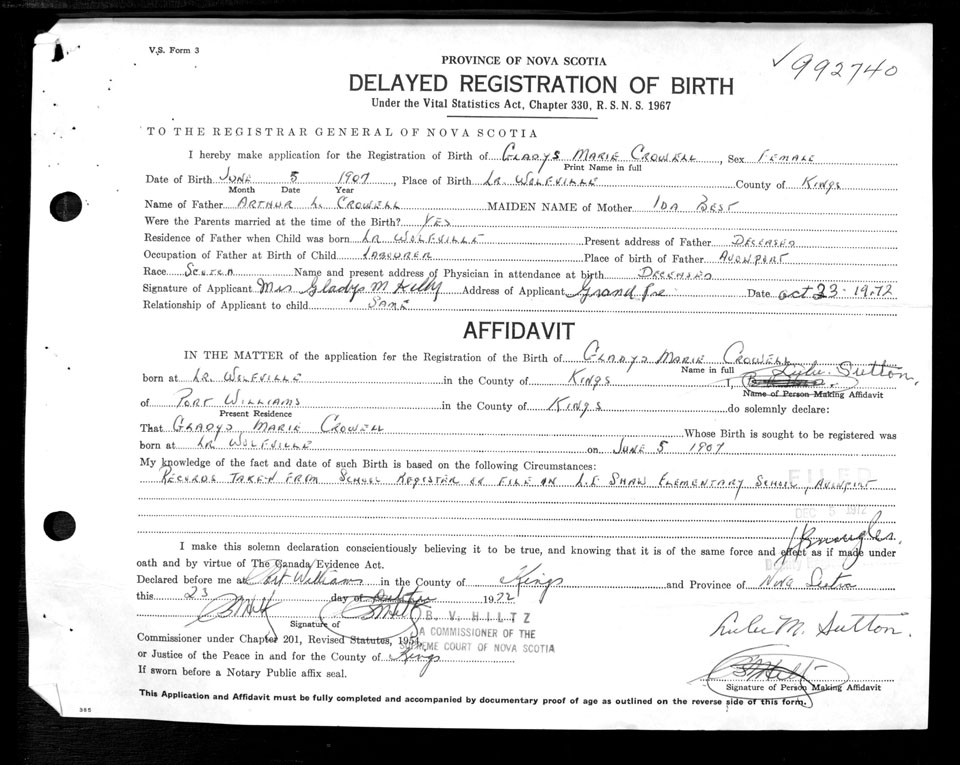 V.S. Form 3
992740
PROVINCE OF NOVA SCOTIA
DELAYED REGISTRATION OF BIRTH
Under the Vital Statistics Act, Chapter 330, R.S.N.S. 1967
TO THE REGISTRAR GENERAL OF NOVA SCOTIA
I hereby make application for the Registration of Birth of GLADYS MARIE CROWELL, Sex FEMALE
Print Name in full
Date of Birth JUNE 5 1907, Place of Birth LR. WOLFVILLE County of KINGS
Month Date Year
Name of Father ARTHUR L. CROWELL MAIDEN NAME of Mother IDA BEST
Were the Parents married at the time of the Birth? YES
Residence of Father when Child was born LR. WOLFVILLE Present address of Father DECEASED
Occupation of Father at Birth of Child LABOURER Place of birth of Father AVONPORT
Race SCOTCH Name and present address of Physician in attendance at birth DECEASED
Signature of Applicant Mrs Gladys M Kelly Address of Applicant Grand Pre Date Oct 23 - 1972
Relationship of Applicant to child SAME
AFFIDAVIT
IN THE MATTER of the application for the Registration of the Birth of GLADYS MARIE CROWELL
Name in full
born at LR. WOLFVILLE in the County of KINGS I, Lulu Sutton.
Name of Person Making Affidavit
of PORT WILLIAMS in the County of KINGS do solemnly declare:
Present Residence
That GLADYS MARIE CROWELL Whose Birth is sought to be registered was
born at LR WOLFVILLE on JUNE 5 1907
My knowledge of the fact and date of such Birth is based on the following Circumstances:
RECORDS TAKEN FROM SCHOOL REGISTER ON FILE IN L.E SHAW ELEMENTARY SCHOOL, AVONPORT
FILED
DEC 5 1972
I make this solemn declaration conscientiously believing it to be true, and knowing that it is of the same force and effect as if made under
oath and by virtue of The Canada Evidence Act.
Declared before me at Port Williams in the County of Kings and Province of Nova Scotia
this 23 day of October 1972
B. V. HILTZ
Signature of
A COMMISSIONER OF THE
Commissioner under Chapter 201, Revised Statutes, 1954,
SUPREME COURT OF NOVA SCOTIA
Lulu M. Sutton.
or Justice of the Peace in and for the County of Kings
If sworn before a Notary Public affix seal.
Signature of Person Making Affidavit
This Application and Affidavit must be fully completed and accompanied by documentary proof of age as outlined on the reverse side of this form.
385